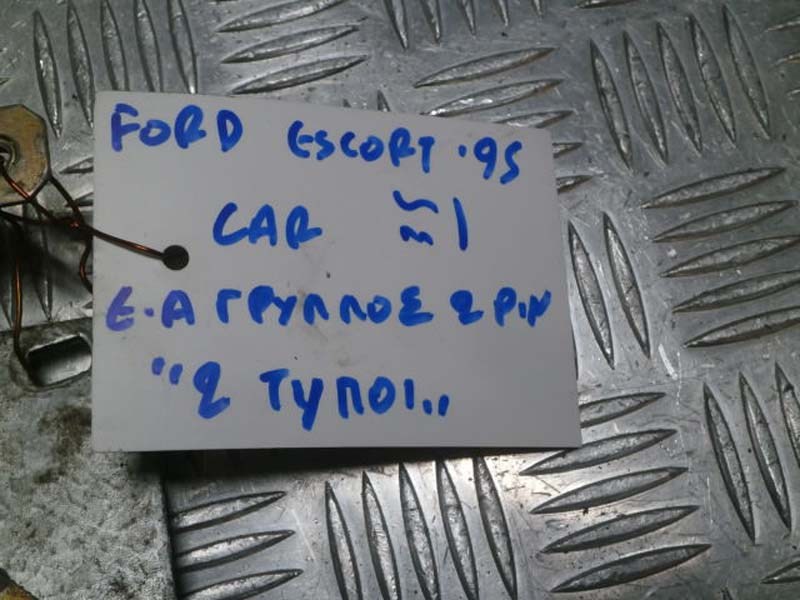 FORD ESCORT '95
CAR 1
Ε.Α ΓΡΥΛΛΟΣ 2 PIN
"2 ΤΥΠΟΙ"